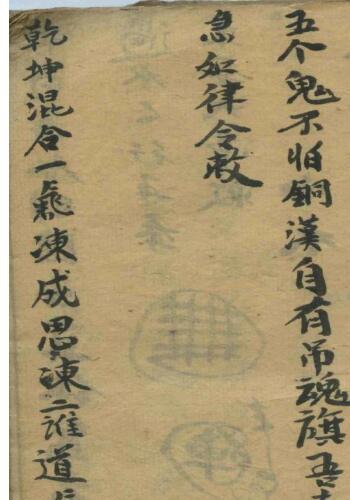 五个鬼不怕銅漢自有吊魂旗吾
急如律令敕
乾坤混合一炁凍成思凍二誰道